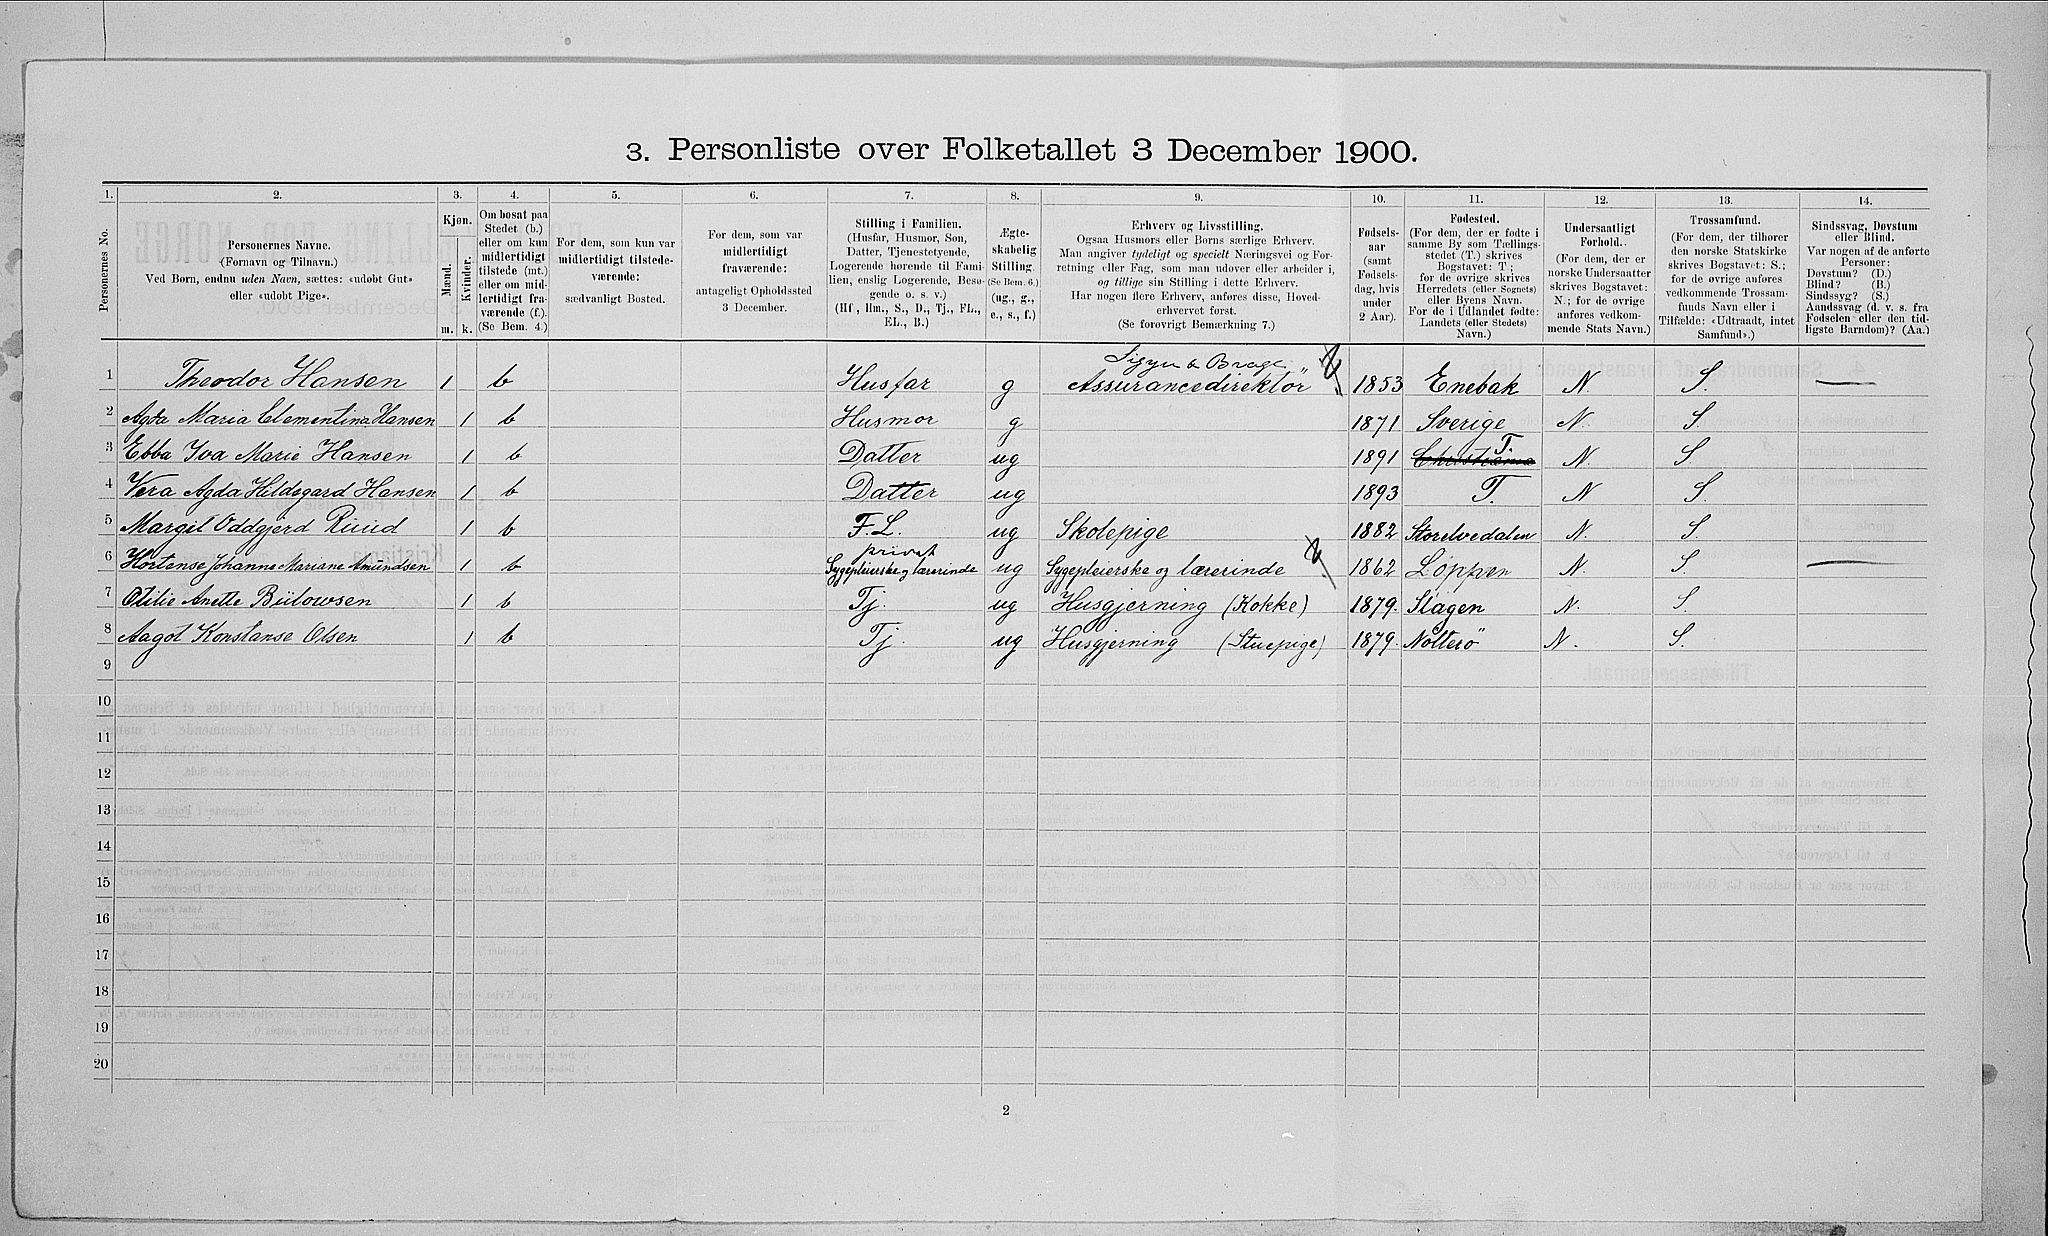 3. Personliste over Folketallet 3 December 1900.
1. 2. 3. 4. 5. 6. 7. 8. 9. 10. 11. 12. 13. 14.
Personernes No.
Personernes Navne.
(Fornavn og Tilnavn.)
Ved Børn, endnu uden Navn, sættes: «udøbt Gut»
eller «udøbt Pige».
Kjøn.
Mænd.
Kvinder.
m. k.
Om bosat paa
Stedet (b.)
eller om kun
midlertidigt
tilstede (mt.)
eller om mid-
lertidigt fra-
værende (f.).
(Se Bem. 4.)
For dem, som kun var
midlertidigt tilstede-
værende:
sædvanligt Bosted.
For dem, som var
midlertidigt
fraværende:
antageligt Opholdssted
3 December.
Stilling i Familien.
(Husfar, Husmor, Søn,
Datter, Tjenestetyende,
Logerende hørende til Fami-
lien, enslig Logerende, Besø-
gende o. s. v.)
(Hf., Hm., S., D., Tj., FL.,
EL., B.)
Ægte-
skabelig
Stilling.
(Se Bem. 6.)
(ug., g.,
e., s., f.)
Erhverv og Livsstilling.
Ogsaa Husmors eller Børns særlige Erhverv.
Man angiver tydeligt og specielt Næringsvei og For-
retning eller Fag, som man udøver eller arbeider i,
og tillige sin Stilling i dette Erhverv.
Har nogen flere Erhverv, anføres disse, Hoved-
erhvervet først.
(Se forøvrigt Bemærkning 7.)
Fødsels-
aar
(samt
Fødsels-
dag, hvis
under
2 Aar).
Fødested.
(For dem, der er fødte i
samme By som Tællings-
stedet (T.) skrives
Bogstavet: T;
for de øvrige skrives
Herredets (eller Sognets)
eller Byens Navn.
For de i Udlandet fødte:
Landets (eller Stedets)
Navn.)
Undersaatligt
Forhold.
(For dem, der er
norske Undersaatter
skrives Bogstavet:
N.; for de øvrige
anføres vedkom-
mende Stats Navn.)
Trossamfund.
(For dem, der tilhører
den norske Statskirke
skrives Bogstavet: S.;
for de øvrige anføres
vedkommende Trossam-
funds Navn eller i
Tilfælde: «Udtraadt, intet
Samfund».)
Sindssvag, Døvstum
eller Blind.
Var nogen af de anførte
Personer:
Døvstum? (D.)
Blind? (B.)
Sindssyg? (S.)
Aandssvag (d. v. s. fra
Fødselen eller den tid-
ligste Barndom)? (Aa.)
Sigyn & Brage
1 Theodor Hansen 1 b Husfar g Assurancedirektör 1853 Enebak N. S.
2 Agda Maria Clementina Hansen 1 b Husmor g 1871 Sverige N. S.
3 Ebba Iva Marie Hansen 1 b Datter ug 1891 Christiania T. N. S.
4 Vera Agda Hildegard Hansen 1 b Datter ug 1893 T. N S.
5 Margit Oddgjerd Ruud 1 b F.L. ug Skolepige 1882 Storelvedalen N. S.
privat
6 Hortense Johanne Mariane Amundsen 1 b Sygepleierske og lærerinde ug Sygepleierske og lærerinde 1862 N. S.
7 Otilie Anette Bülowsen 1 b Tj. ug Husgjerning (Kokke) 1879. Slagen N. S.
8 Aagot Konstanse Olsen 1 b Tj. ug Husgjerning (Stuepige) 1879. Nötterö N. S.
9
10
11
12
13
14
15
16
17
18
19
20
2